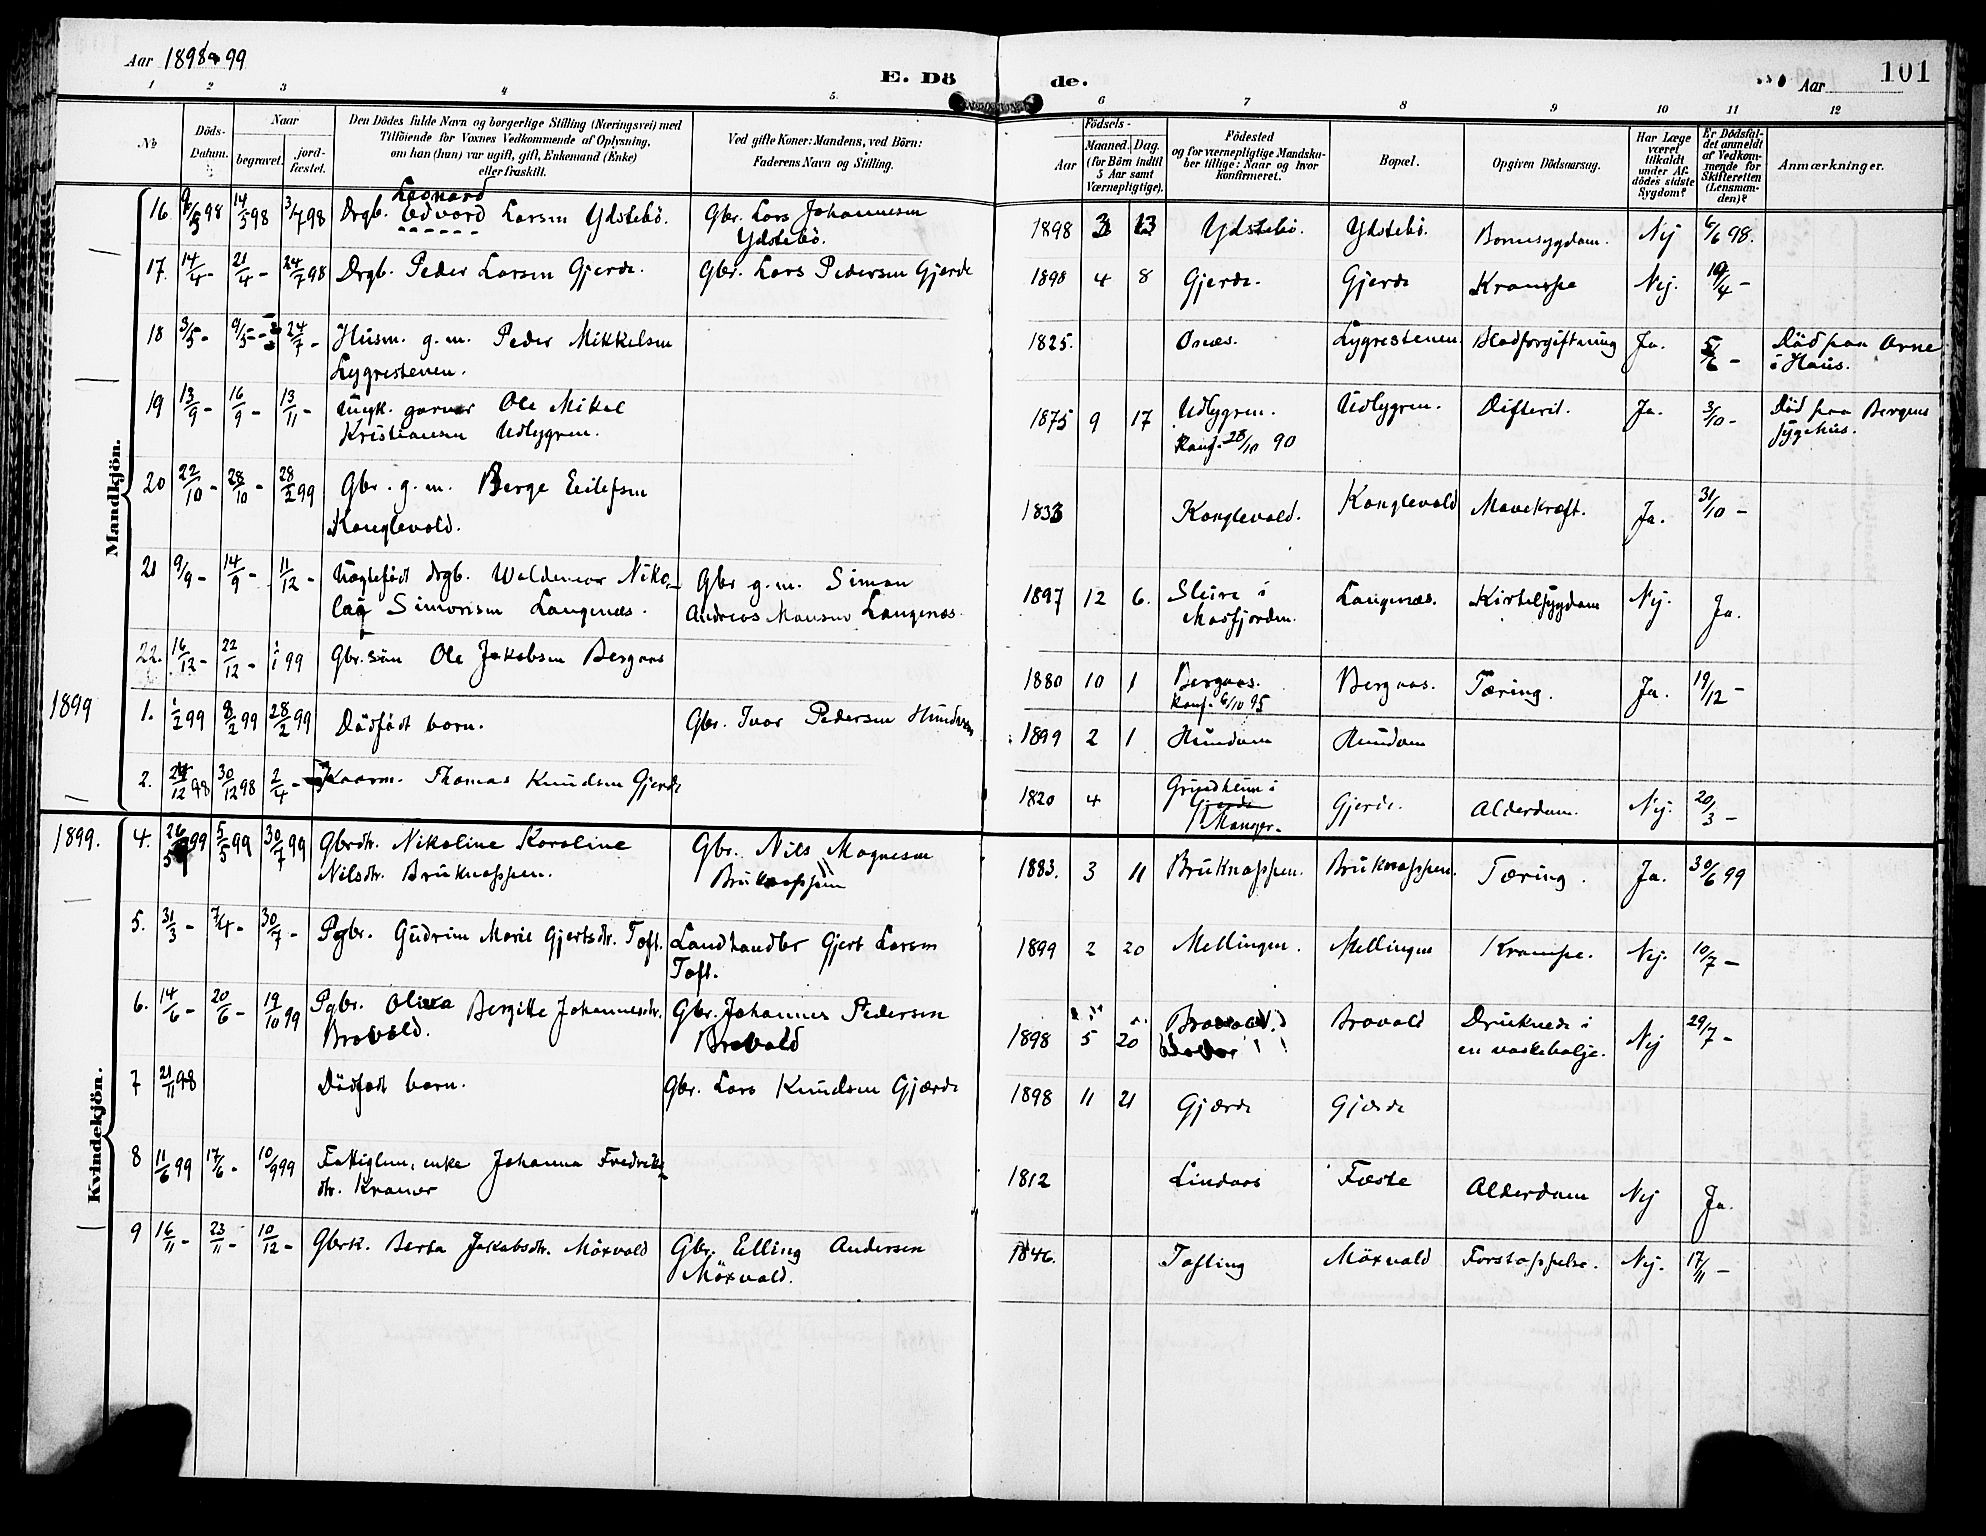 Aar 1898 99
E. Döde.
Aar
101
1 2 3 4 5. 6 7 8 9 10 11 12
No
Döds-Datum.
Naar
begravet.
jord-fæstet.
Den Dödes fulde Navn og borgerlige Stilling (Næringsvei) med
Tilföiende for Voxnes Vedkommende af Oplysning,
om han (hun) var ugift, gift, Enkemand (Enke)
eller fraskilt.
Ved gifte Koner: Mandens, ved Börn:
Faderens Navn og Stilling.
Födsels-
Aar
Maaned. Dag.
(for Börn indtil
5 Aar samt
Værnepligtige).
Födested
og for værnepligtige Mandsku-
ber tillige: Naar og hvor
konfirmeret.
Bopæl.
Opgiven Dödsaarsag.
Har Læge
været
tilkaldt
under Af-
dödes sidste
Sygdom?
Er Dödsfal-
det anmeldt
af Vedkom-
mende for
Skifteretten
(Lensman-
den)?
Anmærkninger.
Mandkjön.
Leonard
16. 98 14/5 98 3/7 98 Drgb. Edvard Larsen Ydstebö. Gbr. Lars Johannesen 1898 3 13 Ydstebö. Ydstebö. Nej 6/6 98.
Ydstebö.
17. 14/4 - 21/4 - 24/7 98 Drgb. Peder Larsen Gjerde. Gbr. Lars Pedersen Gjerde 1898 4 8 Gjerde. Gjerde Krampe Nej. 19/4 -
18 3/5 - 9/5 - 24/7 - Husm. g.m. Peder Mikkelsen 1825. Osnes. Lygrestenen. Blodforgiftning Ja. - Död paa Arne
Lygrestenen. i Haus.
19 13/9 - 16/9 - 13/11 - Ungk. Ole Mikal 1875 9 17 Udlygren. Udlygren. Difterit. Ja. 3/10 - Död paa Bergens
Kristiansen Udlygren. Konf. 90 sygehus.
20 22/10 - 28/10 - 28/2 99 Gbr. g.m. Berge Eilefsen 1833 Konglevold. Konglevold Mavekræft. Ja. 31/10 -
Konglevold.
21 9/9 - 14/9 - 11/12 - Uægtefödt drgb. Waldemar Niko- Gbr g.m. Simon 1897 12 6. Sleire i Langenæs. Kirtelsygdom Nej. Ja.
lay Simonsen Langenæs. Andreas Monsen Langenæs. Masfjorden.
22. 16/12 - 22/12 - 1/1 99 Gbr. sön Ole Jakobsen Bergaas 1880 10 1 Bergaas. Bergaas. Tæring. Ja. 19/12 -
Konf. 6/10 95
1899 1. 1/2 99 8/2 99 28/2 99 Dödfödt barn. Gbr. Ivar Pedersen Hundven 1899 2 1 Hundven Hundven
2. 24/12 98 30/12 98 2/4 - Kaarm. Thomas Knudsen Gjerde 1820 4 Grindheim i Gjerde. Alderdom. Nej. 20/3 -
Gjerde
Manger.
Kvindekjön.
1899. 4. 99 5/5 99 30/7 99 Gbrdtr. Nikoline Karoline Gbr. Nils Magnesen 1883. 3 11 Bruknappen. Bruknappen. Tæring. Ja. 30/6 99
Nilsdtr. Bruknappen. Bruknappen
5. 31/3 - 7/4 - 30/7 - Pgbr. Gudrun Marie Gjertsdtr. Toft. Landhandler Gjert Larsen 1899 2 20 Mellingen. Mellingen Krampe. Nej. 10/7 -
Toft.
6. 14/6 - 20/6 - 19/10 99 Pgbr. Oliva Bergitte Johannesdtr. Gbr. Johannes Pedersen 1898 5 20 Brovold. Brovold Druknede i Nej 29/7 -
Brovold. Brovold en vaskebalje.
7 21/11 98 Dödfödt barn. Gbr. Lars Knudsen Gjærde 1898 11 21 Gjærde Gjærde
8 11/6 99 17/6 - 10/9 99 Fattiglem, enke Johanna Fredriks- 1812 Lindaas Fæste Alderdom Nej Ja.
dtr. Kramer
9 16/11 - 23/11 - 10/12 - Gbrk. Berta Jakobsdtr. Mörvold Gbr. Elling Andersen 1846. Tofting Mörvold Forstoppelse. Nej. 17/11 -
Mörvold.